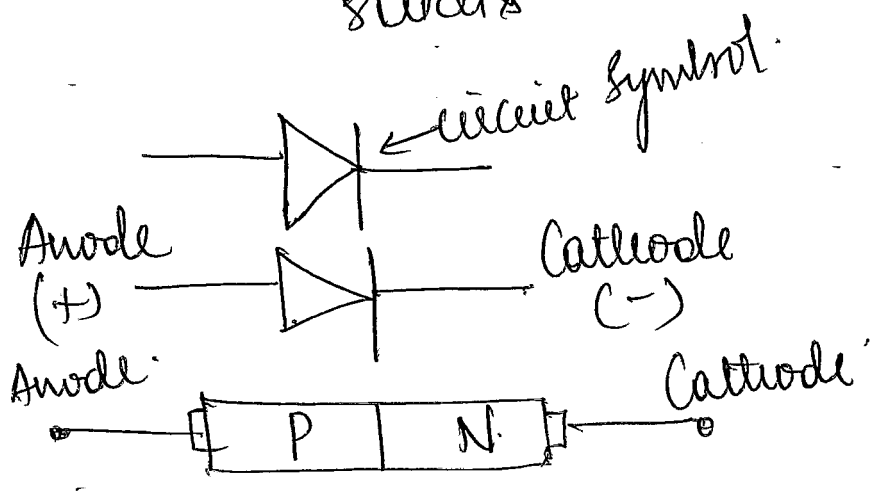 Circuit Symbol.
Anode Cathode
(+) (-)
Anode. Cathode
P N.